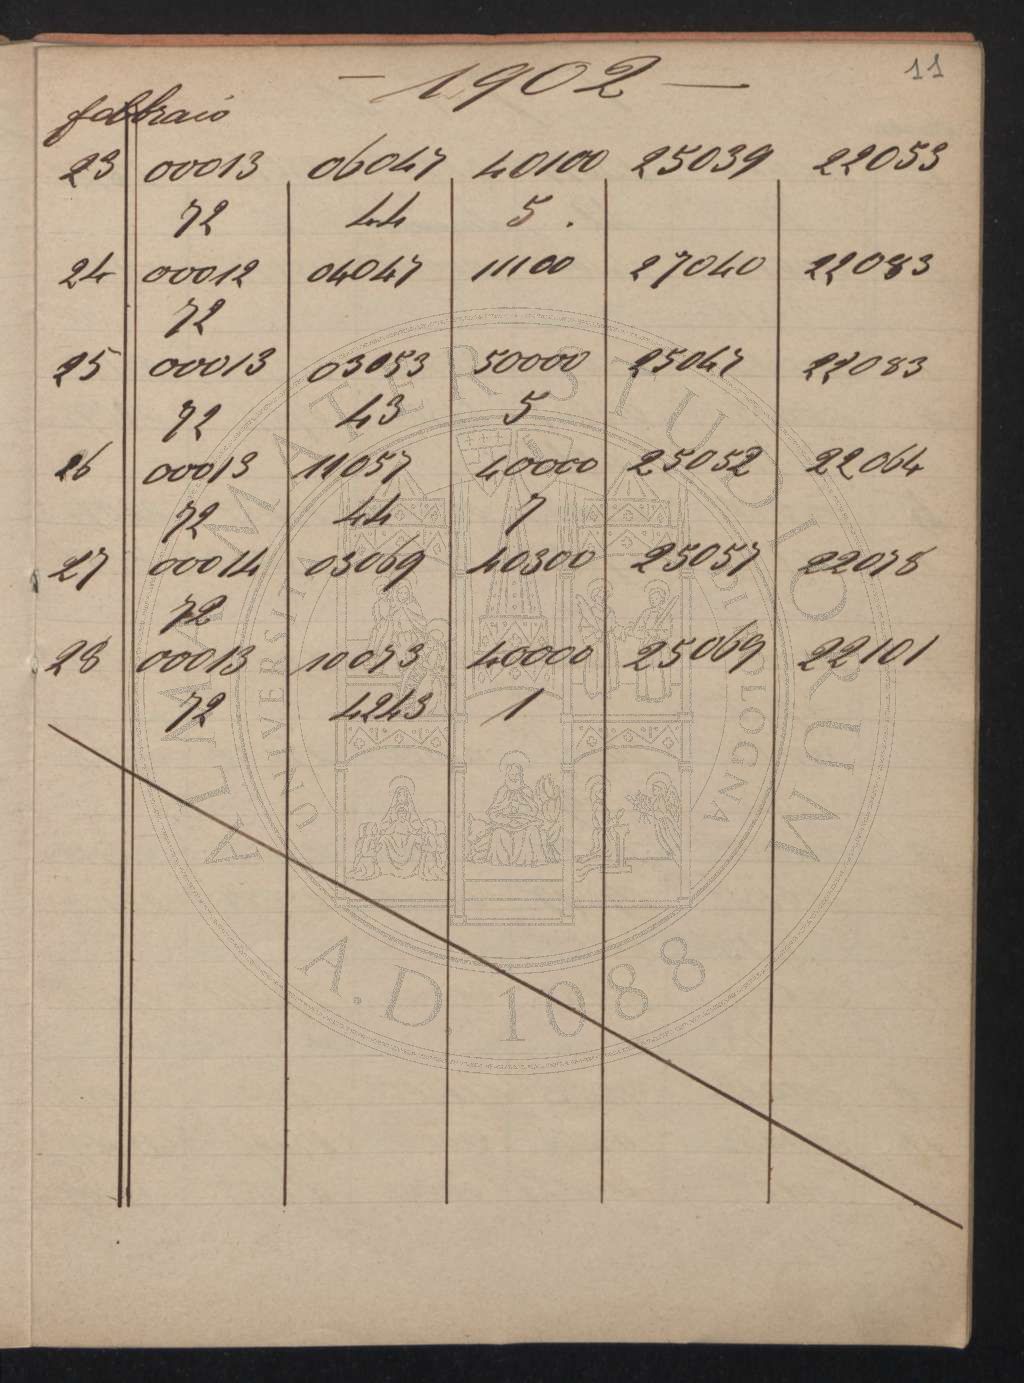 11
— 1902 —
febbraio
23 00013 06047 40100 25039 22053
72 44 5.
24 00012 04047 11100 27040 22083
72
25 00013 03053 50000 25047 22083
72 43 5
26 00013 11057 40000 25052 22064
72 44 7
27 00014 03069 40300 25057 22078
72
28 00013 10073 40000 25069 22101
72 4243 1
ALMA MATER STUDIORUM
A.D. 1088
UNIVERSITÀ DI BOLOGNA